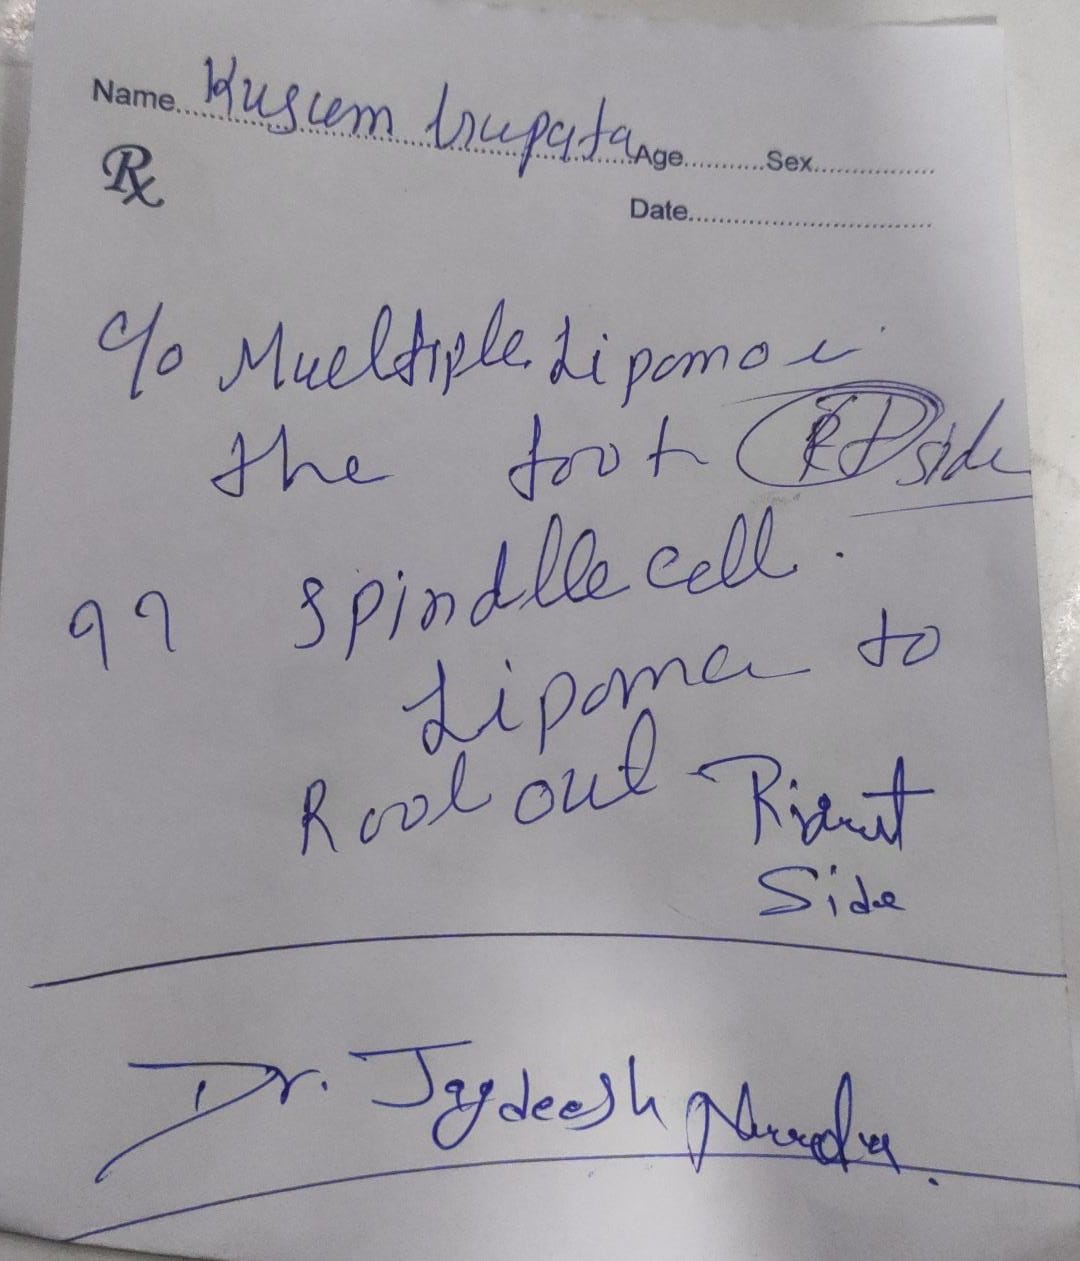 Name Kusum trupata Age Sex
Rx
Date
c/o Mueltiple Lipoma i
the foot Rt side
?? Spindlle cell.
Lipoma to
Rool out - Right
Side
Dr. Jaydeesh